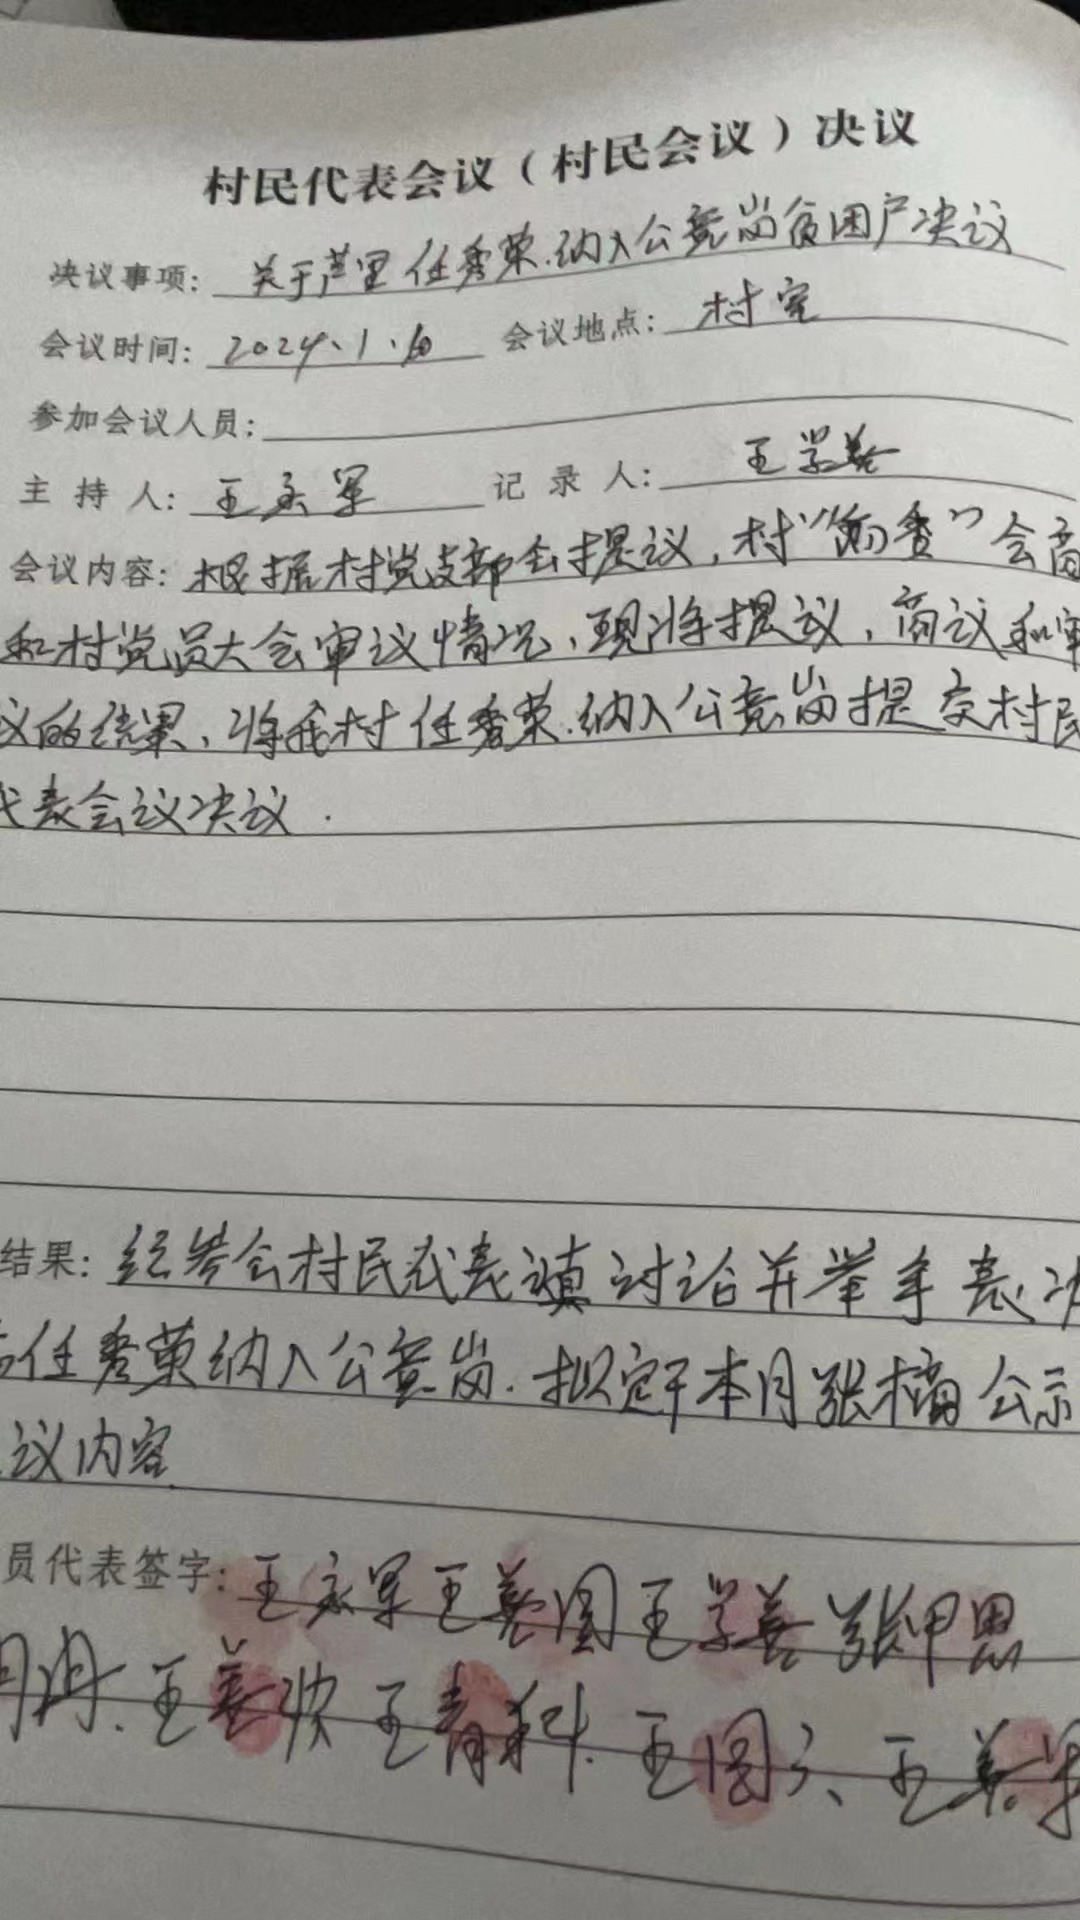 村民代表会议（村民会议）决议
决议事项: 关于芦里任秀荣.纳入公竟岗贫困户决议
会议时间: 2024.1.10 会议地点: 村室
参加会议人员:
主 持 人: 王永军 记 录 人: 王学善
会议内容: 根据村党支部会提议，村“两委”会商
和村党员大会审议情况，现将提议，商议和审
议的结果，将我村任秀荣.纳入公竟岗提交村民
代表会议决议.
结果: 经参会村民代表 讨论并举手表决
任秀荣纳入公意岗.拟定于本月张榜公示
议内容
员代表签字: 王永军 王善国 王学善 张甲恩
王善欣 王青科. 王图 、王善